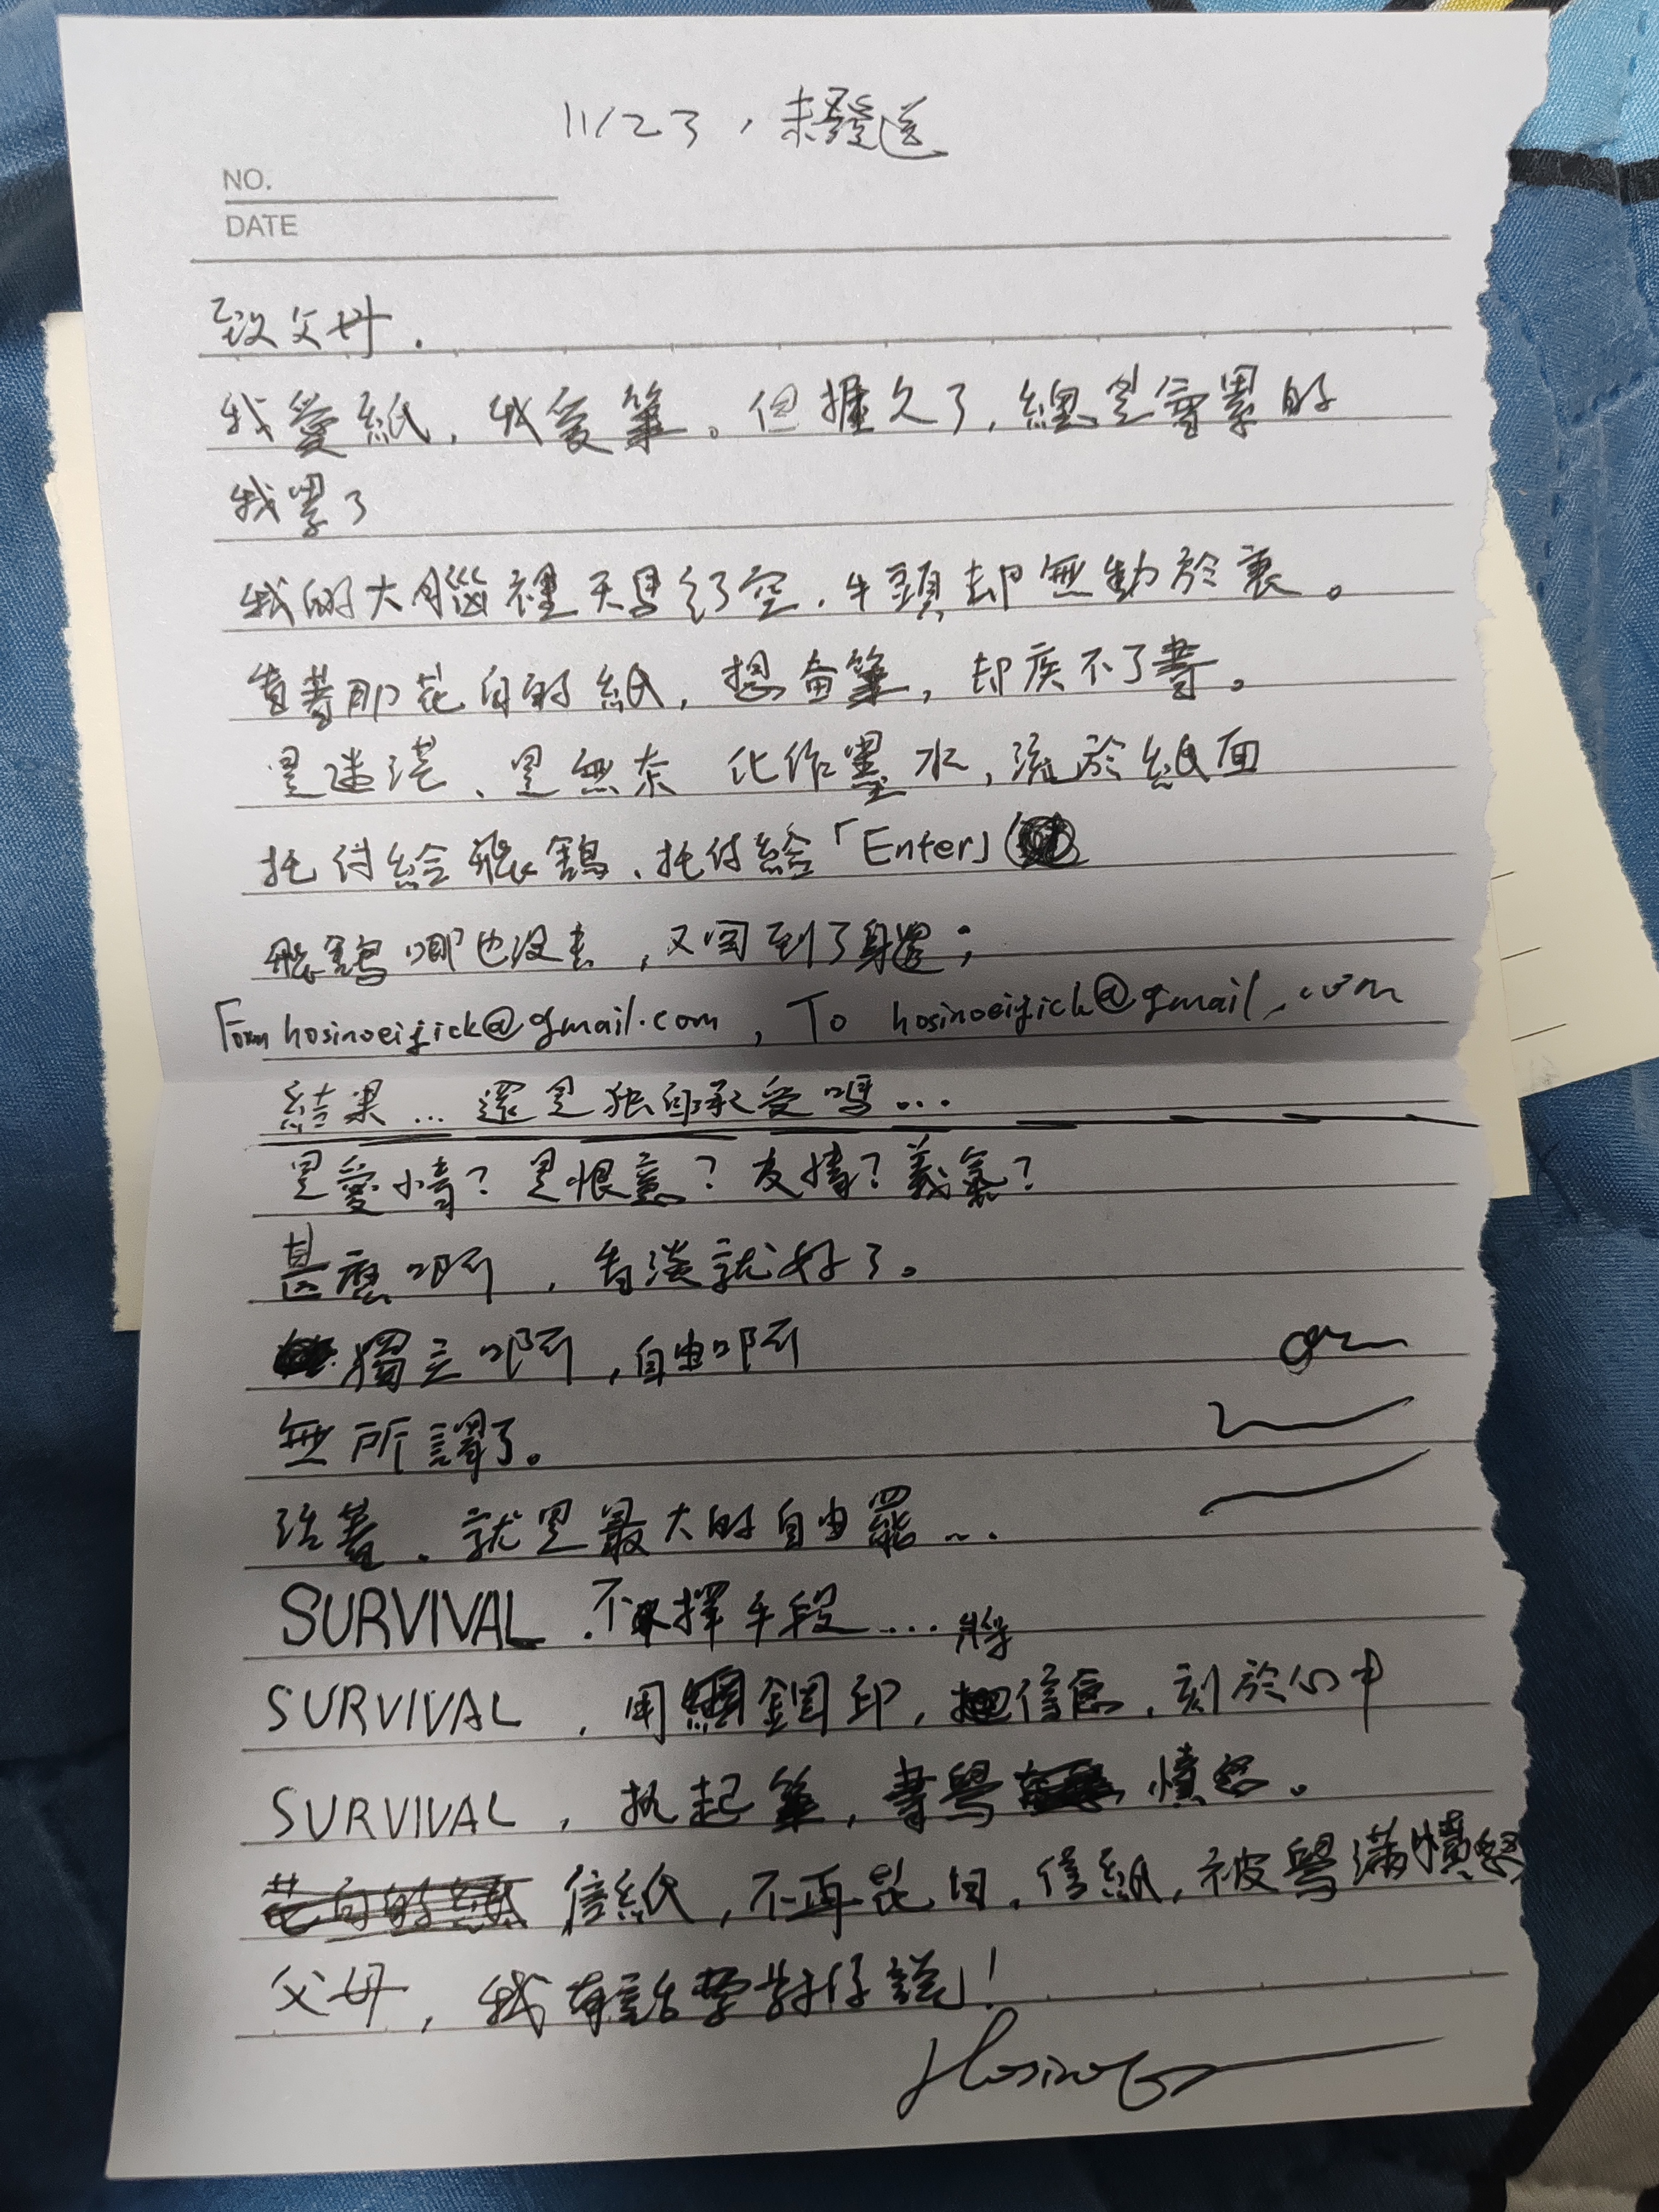 11/23，未發送
NO.
DATE
致父母．
我愛紙，我愛筆。但握久了，總是會累的
我累了
我的大腦裡天馬行空，手頭却無動於衷。
看著那花白的紙，想奋筆，却疾不了書。
是迷茫、是無奈 化作墨水，流於紙面
托付給飛鴿、托付給「Enter」
飛鴿哪也沒去，又回到了身邊；
Form hosinoeijick@gmail.com , To hosinoeijick@gmail.com
結果…還是独自承受嗎…
是愛情？是恨意？友情？義氣？
甚麼啊，看淡就好了。
獨立啊，自由啊
無所謂了。
活著，就是最大的自由罷…
SURVIVAL．不擇手段…
SURVIVAL ，用鋼印，將信息，刻於心中
SURVIVAL ，执起筆，書寫憤怒。
信紙，不再花白，信紙，被寫滿憤怒
父母，我有話要對你說！
Hosino